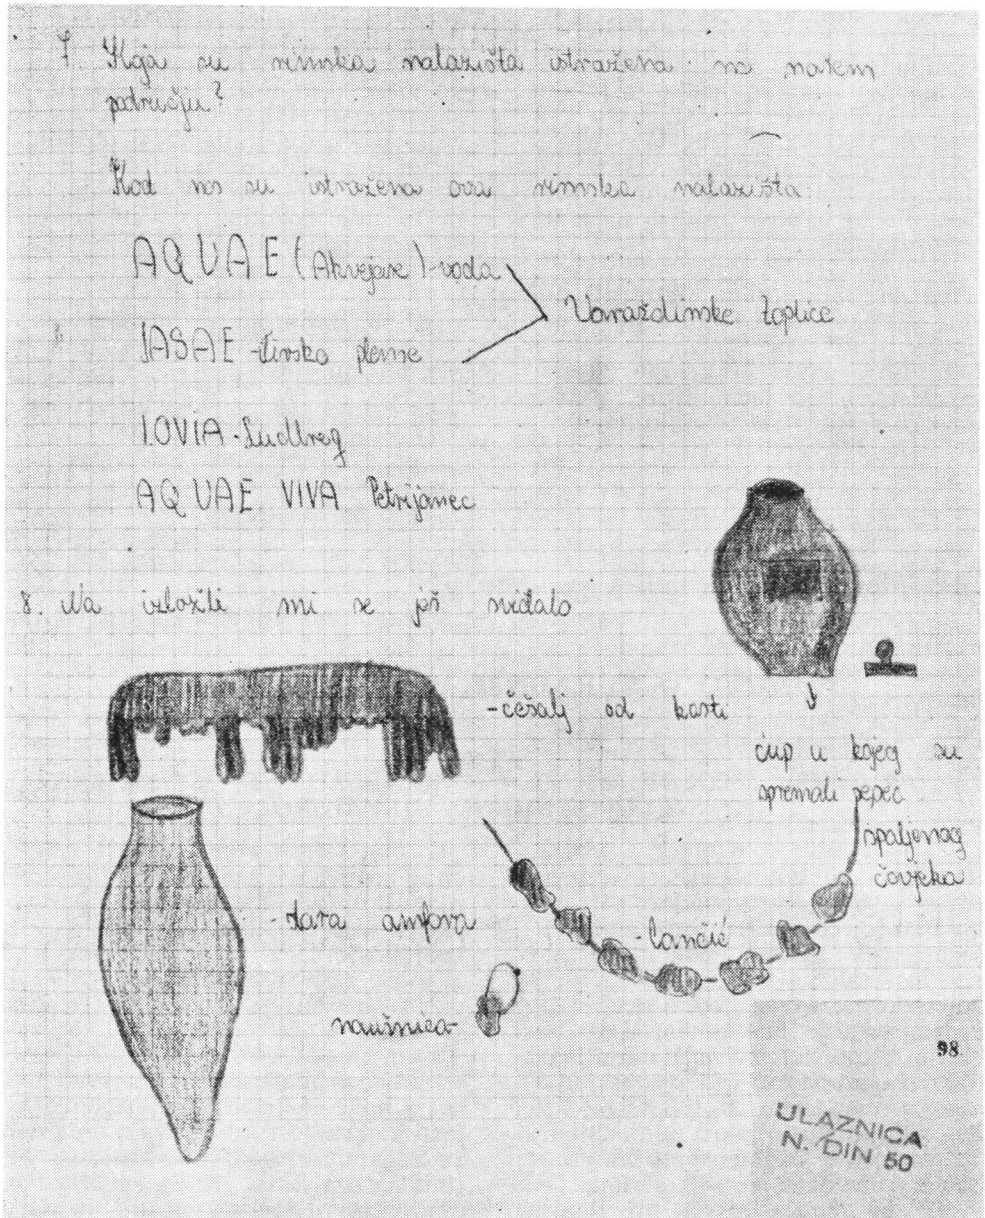 7. Koja su rimska nalazišta istražena na našem
području?
Kod nas su istražena ova rimska nalazišta:
AQUAE (Akvejase)-voda
JASAE - ilirsko pleme
Varaždinske toplice
LOVIA - Ludbreg
AQUAE VIVA Petrijanec
8. Na izložbi mi se još sviđalo
-češalj od kosti
ćup u kojeg su
spremali pepeo
spaljenog
čovjeka
-stara amfora
-lančić
naušnica-
98
ULAZNICA
N. DIN 50